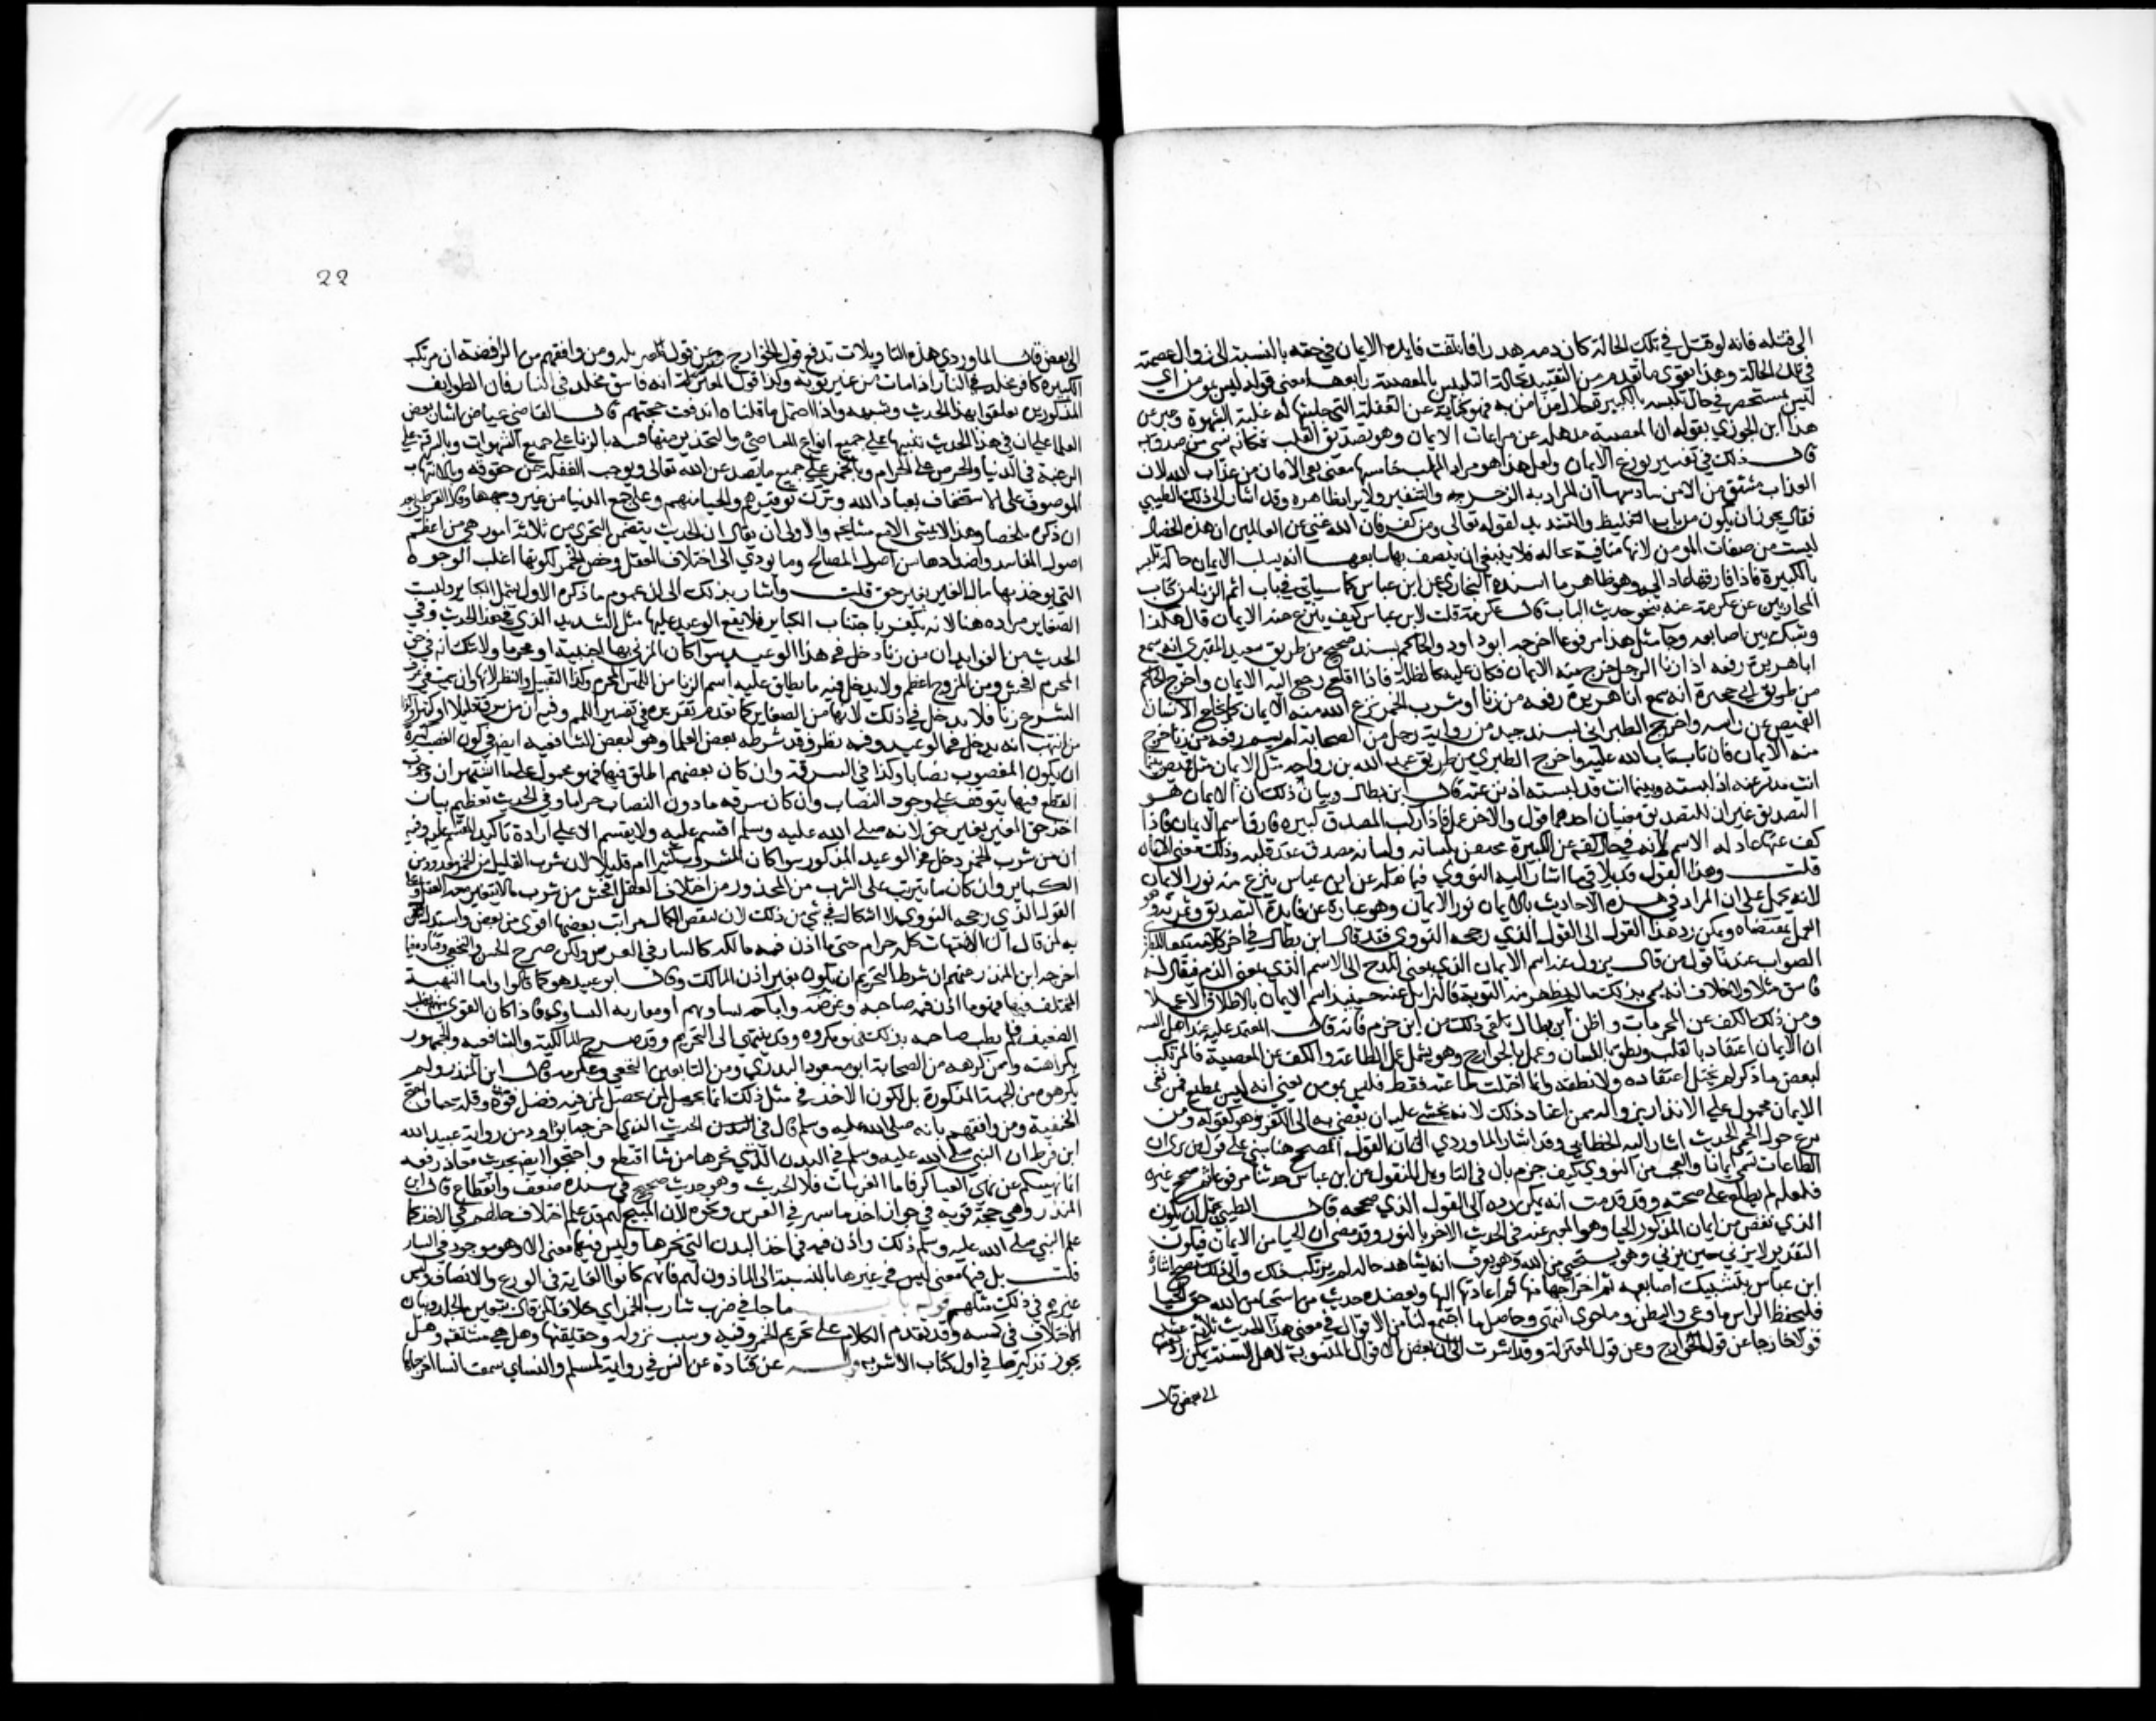 الى قتله فانه لو قتل في تلك الحالة كان دمه هدرا فانتفت فايدة الايمان في حقه بالنسبة الى زوال عصمته
في تلك الحالة وهذا يقوي ما تقدم من التقييد بحالة التلبس بالمعصية رابعها معنى قوله ليس بمومن اي
ليس بمستحضر في حال تلبسه بالكبيرة جلال من امن به فهو كناية عن الغفلة التي جلبتها له غلبة الشهوة وعبر عن
هذا ابن الجوزي بقوله ان المعصية تذهله عن مراعات الايمان وهو تصديق القلب فكانه نسي من صدق به
قال ذلك في تفسير نزع الايمان ولعل هذا هو مراد المهلب خامسها معنى نفي الامان من عذاب الله لان
الايمان مشتق من الامن سادسها ان المراد به الزجر والتنفير ولا يراد ظاهره وقد اشار الى ذلك الطيبي
فقال يجوز ان يكون من باب التغليظ والتشديد لقوله تعالى ومن كفر فان الله غني عن العالمين ان هذه الخصال
ليست من صفات المومن لانها منافية بحاله فلا ينبغي ان يتصف بها سابعها انه يسلب الايمان حالة تلبسه
بالكبيرة فاذا فارقها عاد اليه وهو ظاهر ما اسنده البخاري عن ابن عباس كما سياتي في باب اثم الزنا من كتاب
المحاربين عن عكرمة عنه بنحو حديث الباب قال عكرمة قلت لابن عباس كيف ينزع منه الايمان قال هكذا
وشبك بين اصابعه وجا مثل هذا مرفوعا اخرجه ابو داود والحاكم بسند صحيح من طريق سعيد المقبري انه سمع
ابا هريرة رفعه اذا زنا الرجل خرج منه الايمان فكان عليه كالظلة فاذا اقلع رجع اليه الايمان واخرج الحاكم
من طريق ابي حجيرة انه سمع ابا هريرة رفعه من زنا او شرب الخمر نزع الله منه الايمان كما يخلع الانسان
القميص عن راسه واخرج الطبراني بسند جيد من رواية رجل من الصحابة لم يسم رفعه من زنا خرج
منه الايمان فان تاب تاب الله عليه واخرج الطبري من طريق عبد الله بن رواحه مثل الايمان مثل قميص بينما
انت مدبر عنه اذ لبسته وبينما انت قد لبسته اذ نزعته قال ابن بطال وبيان ذلك ان الايمان هو
التصديق غير ان للتصديق معنيان احدهما قول والاخر عمل فاذا ركب المصدق كبيرة فارق اسم الايمان فاذا
كف عنها عاد له الاسم لانه في حال كفه عن الكبيرة مجتنب بلسانه ولسانه مصدق عقد قلبه وذلك معنى الايمان
قلت وهذا القول قد يلاقي ما اشار اليه النووي فيما نقله عن ابن عباس ينزع منه نور الايمان
لانه يحمل على ان المراد في هذه الاحاديث بالايمان نور الايمان وهو عبارة عن فايدة التصديق وثمرته وهو
العمل بمقتضاه ويمكن رد هذا القول الى القول الذي رجحه النووي فقد قال ابن بطال في اخر كلامه تبعا للطبري
الصواب عندنا قول من قال يزول عنه اسم الايمان الذي بمعنى المدح الى الاسم الذي بمعنى الذم فيقال له
فاسق مثلا ولا خلاف انه يسمى بذلك ما لم يظهر منه التوبة فالزايل عنه حينيذ اسم الايمان بالاطلاق
ومن ذلك الكف عن المحرمات واظن ابن بطال تلقى ذلك من ابن حزم فانه قال المعتمد عليه عند اهل السنة
ان الايمان اعتقاد بالقلب ونطق باللسان وعمل بالجوارح وهو يشمل عمل الطاعة والكف عن المعصية فالمرتكب
لبعض ما ذكر لم يختل اعتقاده ولا نطقه وانما اختلت طاعته فقط فليس بمومن يعني انه ليس بمطيع فمن نفى
الايمان محمول على الانذار بزواله ممن اعتاد ذلك لانه يخشى عليه ان يفضي به الى الكفر وهو كقوله ومن
يرع حول الحمى الحديث اشار اليه الخطابي وقد اشار الماوردي الى ان القول المصحح هنا مبني على قول من يرى ان
الطاعات تسمى ايمانا والعجب من النووي كيف جزم بان في التاويل المنقول عن ابن عباس حديثا مرفوعا ثم صحح غيره
فلعله لم يطلع على صحته وقد قدمت انه يمكن رده الى القول الذي صححه قال الطيبي يحتمل ان يكون
الذي نقص من ايمان المذكور الحيا وهو المعبر عنه في الحديث الاخر بالنور وقد مضى ان الحيا من الايمان فيكون
التقدير لا يزني حين يزني وهو يستحيي من الله وهو يعرف انه يشاهد حاله لم يرتكب ذلك والى ذلك تصح اشارة
ابن عباس بتشبيك اصابعه ثم اخراجها منها ثم اعادتها اليها ويعضده حديث من استحيا من الله حق الحيا
فليحفظ الراس وما وعى والبطن وما حوى انتهى وحاصل ما اجتمع لنا من الاقوال في معنى هذا الحديث ثلاثة عشر
قولا خارجا عن قول الخوارج وعن قول المعتزلة وقد اشرت الى ان بعض الاقوال المنسوبة لاهل السنة يمكن رد بعضها
الى بعض قال
22
الى بعض قال الماوردي هذه التاويلات تدفع قول الخوارج ومن وافقهم من الرافضة ان مرتكب
الكبيرة كافر مخلد في النار اذا مات من غير توبة وكذا قول المعتزلة انه فاسق مخلد في النار فان الطوايف
المذكورين تعلقوا بهذا الحديث وشبهه واذا احتمل ما قلناه اندفعت حجتهم قال القاضي عياض اشار بعض
العلما على ان في هذا الحديث تنبيها على جميع انواع المعاصي والتحذير منها فنبه بالزنا على جميع الشهوات وبالسرقة على
الرغبة في الدنيا والحرص على الحرام وبالخمر على جميع ما يصد عن الله تعالى ويوجب الغفلة عن حقوقه وبالانتهاب
الموصوف على الاستخفاف بعباد الله وترك توقيرهم والحيا منهم وعلى جمع الدنيا من غير وجهها وقال القرطبي بعد
ان ذكره ملخصا وهذا لا يتمشى الا مع مسامحة والاولى ان يقال ان الحديث يتضمن التحرز من ثلاثة امور هي من اعظم
اصول المفاسد واضدادها من اصول المصالح وما يودي الى اختلاف العقل وخص الخمر لكونها اغلب الوجوه
التي يوخذ بها مال الغير بغير حق قلت واشار بذلك الى ان عموم ما ذكره الاول يشمل الكباير وليست
الصغاير مراده هنا لانه يكفر باجتناب الكباير فلا يقع الوعيد عليها مثل الشديد الذي في هذا الحديث وفي
الحديث من الفوايد ان من زنا دخل في هذا الوعيد سوا كان المزني بها اجنبية او محرما ولا شك انه في حق
المحرم افحش ومن المزوج اعظم ولا يدخل فيه ما يطلق عليه اسم الزنا من اللمس المحرم وكذا التقبيل والنظر لانها وان سميت في عرف
الشرع زنا فلا يدخل في ذلك لانها من الصغاير كما تقدم تقريره في تفسير اللمم وفيه ان من سرق قليلا او كثيرا وكذا
من انتهب انه يدخل في الوعيد وفيه نظر فقد شرط بعض العلما وهو لبعض الشافعية ايضا في كون الغصب كبيرة
ان يكون المغصوب نصابا وكذا في السرقة وان كان بعضهم اطلق فيها فهو محمول على ما اشتهر ان وجوب
القطع فيها يتوقف على وجود النصاب وان كان سرقة ما دون النصاب حراما وفي الحديث تعظيم شان
اخذ حق الغير بغير حق لانه صلى الله عليه وسلم اقسم عليه ولا يقسم الا على ارادة تاكيد المقسم عليه وفيه
ان من شرب الخمر دخل في الوعيد المذكور سوا كان المشروب كثيرا ام قليلا لان شرب القليل من الخمر معدود من
الكباير وان كان ما يترتب على الشرب من المحذور من اختلاف العقل افحش من شرب ما لا يتغير معه العقل وعلى
القول الذي رجحه النووي لا اشكال في شي من ذلك لان لنقص الكمال مراتب بعضها اقوى من بعض واستدل
به من قال ان الانتهاب كله حرام حتى ما اذن فيه مالكه كالنثار في العرس ولكن صرح الحسن والنخعي وقتادة فيما
اخرجه ابن المنذر عنهم ان شرط التحريم ان يكون بغير اذن المالك وقال ابو عبيد هو كما قالوا واما النهبة
المختلف فيها فهو ما اذن فيه صاحبه وغرضه واباحه تساويهم او مقاربة التساوي فاذا كان القوي منهم يغلب
الضعيف فلم تطب صاحبه بذلك فهو مكروه وقد ينتهي الى التحريم وقد صرح المالكية والشافعية والجمهور
بكراهته وممن كرهه من الصحابة ابو مسعود البدري ومن التابعين النخعي وعكرمة قال ابن المنذر ولم
يكرهوه من الجهة المذكورة بل لكون الاخذ في مثل ذلك انما يحصل لمن فيه فضل قوة او قلة حيا واحتج
الحنفية ومن وافقهم بانه صلى الله عليه وسلم قال في الحديث الذي اخرجه ابو داود من رواية عبد الله
ابن قرط ان النبي صلى الله عليه وسلم في البدن التي نحرها من شا اقتطع واحتجوا ايضا بحديث معاذ رفعه
انما نهيتكم عن نهبى العساكر فاما العرسات فلا الحديث وهو حديث ضعيف في سنده ضعف وانقطاع قال ابن
المنذر وهي حجة قوية في جواز اخذ ما ينثر في العرس ونحوه لان المبيح لهم قد علم اختلاف حالهم في الاخذ كما
علم النبي صلى الله عليه وسلم ذلك واذن فيه في اخذ البدن التي نحرها وليس فيها معنى الا وهو موجود في النثار
قلت بل فيها معنى ليس في غيرها بالنسبة الى الماذون لهم فانهم كانوا الغاية في الورع والانصاف وليس
غيرهم في ذلك مثلهم قوله باب ما جا في ضرب شارب الخمر اي خلافا لمن قال بتعين الجلد وبيان
الاختلاف في كميته وقد تقدم الكلام على تحريم الخمر وقتيه وسبب نزوله وحقيقتها وهل هي مشتقة وهل
يجوز تذكيرها في اول كتاب الاشربة قوله عن قتادة عن انس في رواية لمسلم والنساي سمعت انسا اخرجاها